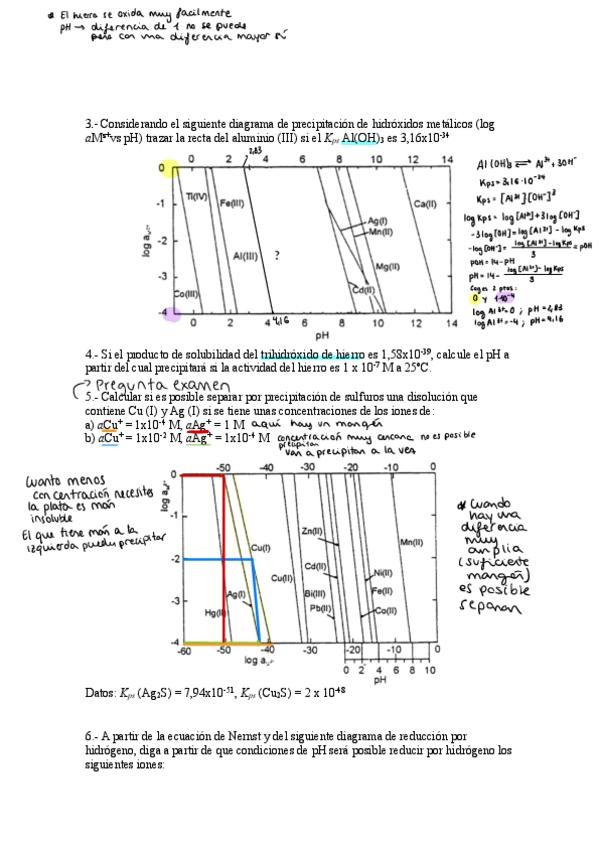 * El hierro se oxida muy facilmente
pH → diferencia de 1 no se puede
pero con una diferencia mayor sí
3.- Considerando el siguiente diagrama de precipitación de hidróxidos metálicos (log
aMz+vs pH) trazar la recta del aluminio (III) si el Kps Al(OH)3 es 3,16x10-34
2,83
0 2 4 6 8 10 12 14
0
-1
-2
-3
-4
log a
Ti(IV)
Fe(III)
Al(III)
?
Co(III)
Ag(I)
Mn(II)
Mg(II)
Cd(II)
Ca(II)
0 2 4 4,16 6 8 10 12 14
pH
Al(OH)3 ⇌ Al3+ + 3OH-
Kps = 3,16·10-34
Kps = [Al3+][OH-]3
log Kps = log [Al3+] + 3log [OH-]
-3log [OH-] = log [Al3+] - log Kps
-log [OH-] = log [Al3+] - log Kps / 3 = pOH
pOH = 14 - pH
pH = 14 - log [Al3+] - log Kps / 3
Coges 2 ptos:
0 y 1·10-4
log Al3+ = 0 ; pH = 2,83
log Al3+ = -4 ; pH = 4,16
4.- Si el producto de solubilidad del trihidróxido de hierro es 1,58x10-39, calcule el pH a
partir del cual precipitará si la actividad del hierro es 1 x 10-7 M a 25°C.
→ Pregunta examen
5.- Calcular si es posible separar por precipitación de sulfuros una disolución que
contiene Cu (I) y Ag (I) si se tiene unas concentraciones de los iones de:
a) aCu+ = 1x10-4 M, aAg+ = 1 M aquí hay un margen
b) aCu+ = 1x10-2 M, aAg+ = 1x10-4 M concentración muy cercana no es posible
precipitar
van a precipitar a la vez
Cuanto menos
concentración necesites
la plata es más
insoluble
El que tiene más a la
izquierda puedu precipitar
-50 -40 -30 -20 -10 0
0
-1
-2
-3
-4
log a
Cu(I)
Ag(I)
Hg(II)
Cu(II)
Zn(II)
Cd(II)
Bi(III)
Pb(II)
Ni(II)
Fe(II)
Co(II)
Mn(II)
-60 -50 -40 -30 -20 -10 0
log a
0 2 4 6 8 10
pH
* Cuando
hay una
diferencia
muy
amplia
(suficiente
margen)
es posible
separar
Datos: Kps (Ag2S) = 7,94x10-51, Kps (Cu2S) = 2 x 10-48
6.- A partir de la ecuación de Nernst y del siguiente diagrama de reducción por
hidrógeno, diga a partir de que condiciones de pH será posible reducir por hidrógeno los
siguientes iones: